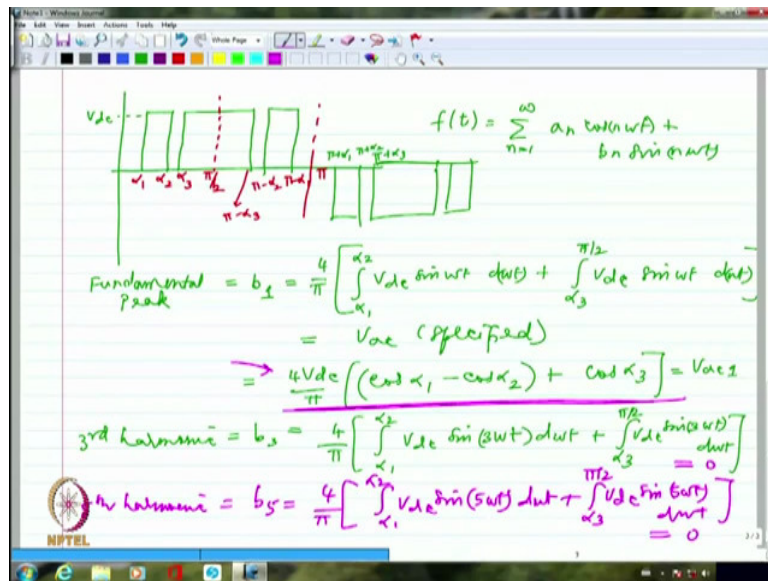 Note1 - Windows Journal
File Edit View Insert Actions Tools Help
Whole Page
B I
Vdc
α1 α2 α3 π/2 π-α2 π-α1 π
π-α3
π+α1 π+α2 π+α3
f(t) = ∑_{n=1}^{∞} an cos(nωt) +
bn sin(nωt)
Fundamental Peak = b1 = 4/π [ ∫_{α1}^{α2} Vdc sin ωt d(ωt) + ∫_{α3}^{π/2} Vdc sin ωt d(ωt) ]
= Vac (specified)
= 4Vdc/π [ (cos α1 - cos α2) + cos α3 ] = Vac1
3rd harmonic = b3 = 4/π [ ∫_{α1}^{α2} Vdc sin(3ωt) dωt + ∫_{α3}^{π/2} Vdc sin(3ωt) dωt ]
= 0
harmonic = b5 = 4/π [ ∫_{α1}^{α2} Vdc sin(5ωt) dωt + ∫_{α3}^{π/2} Vdc sin(5ωt) dωt ]
= 0
NPTEL
3/3